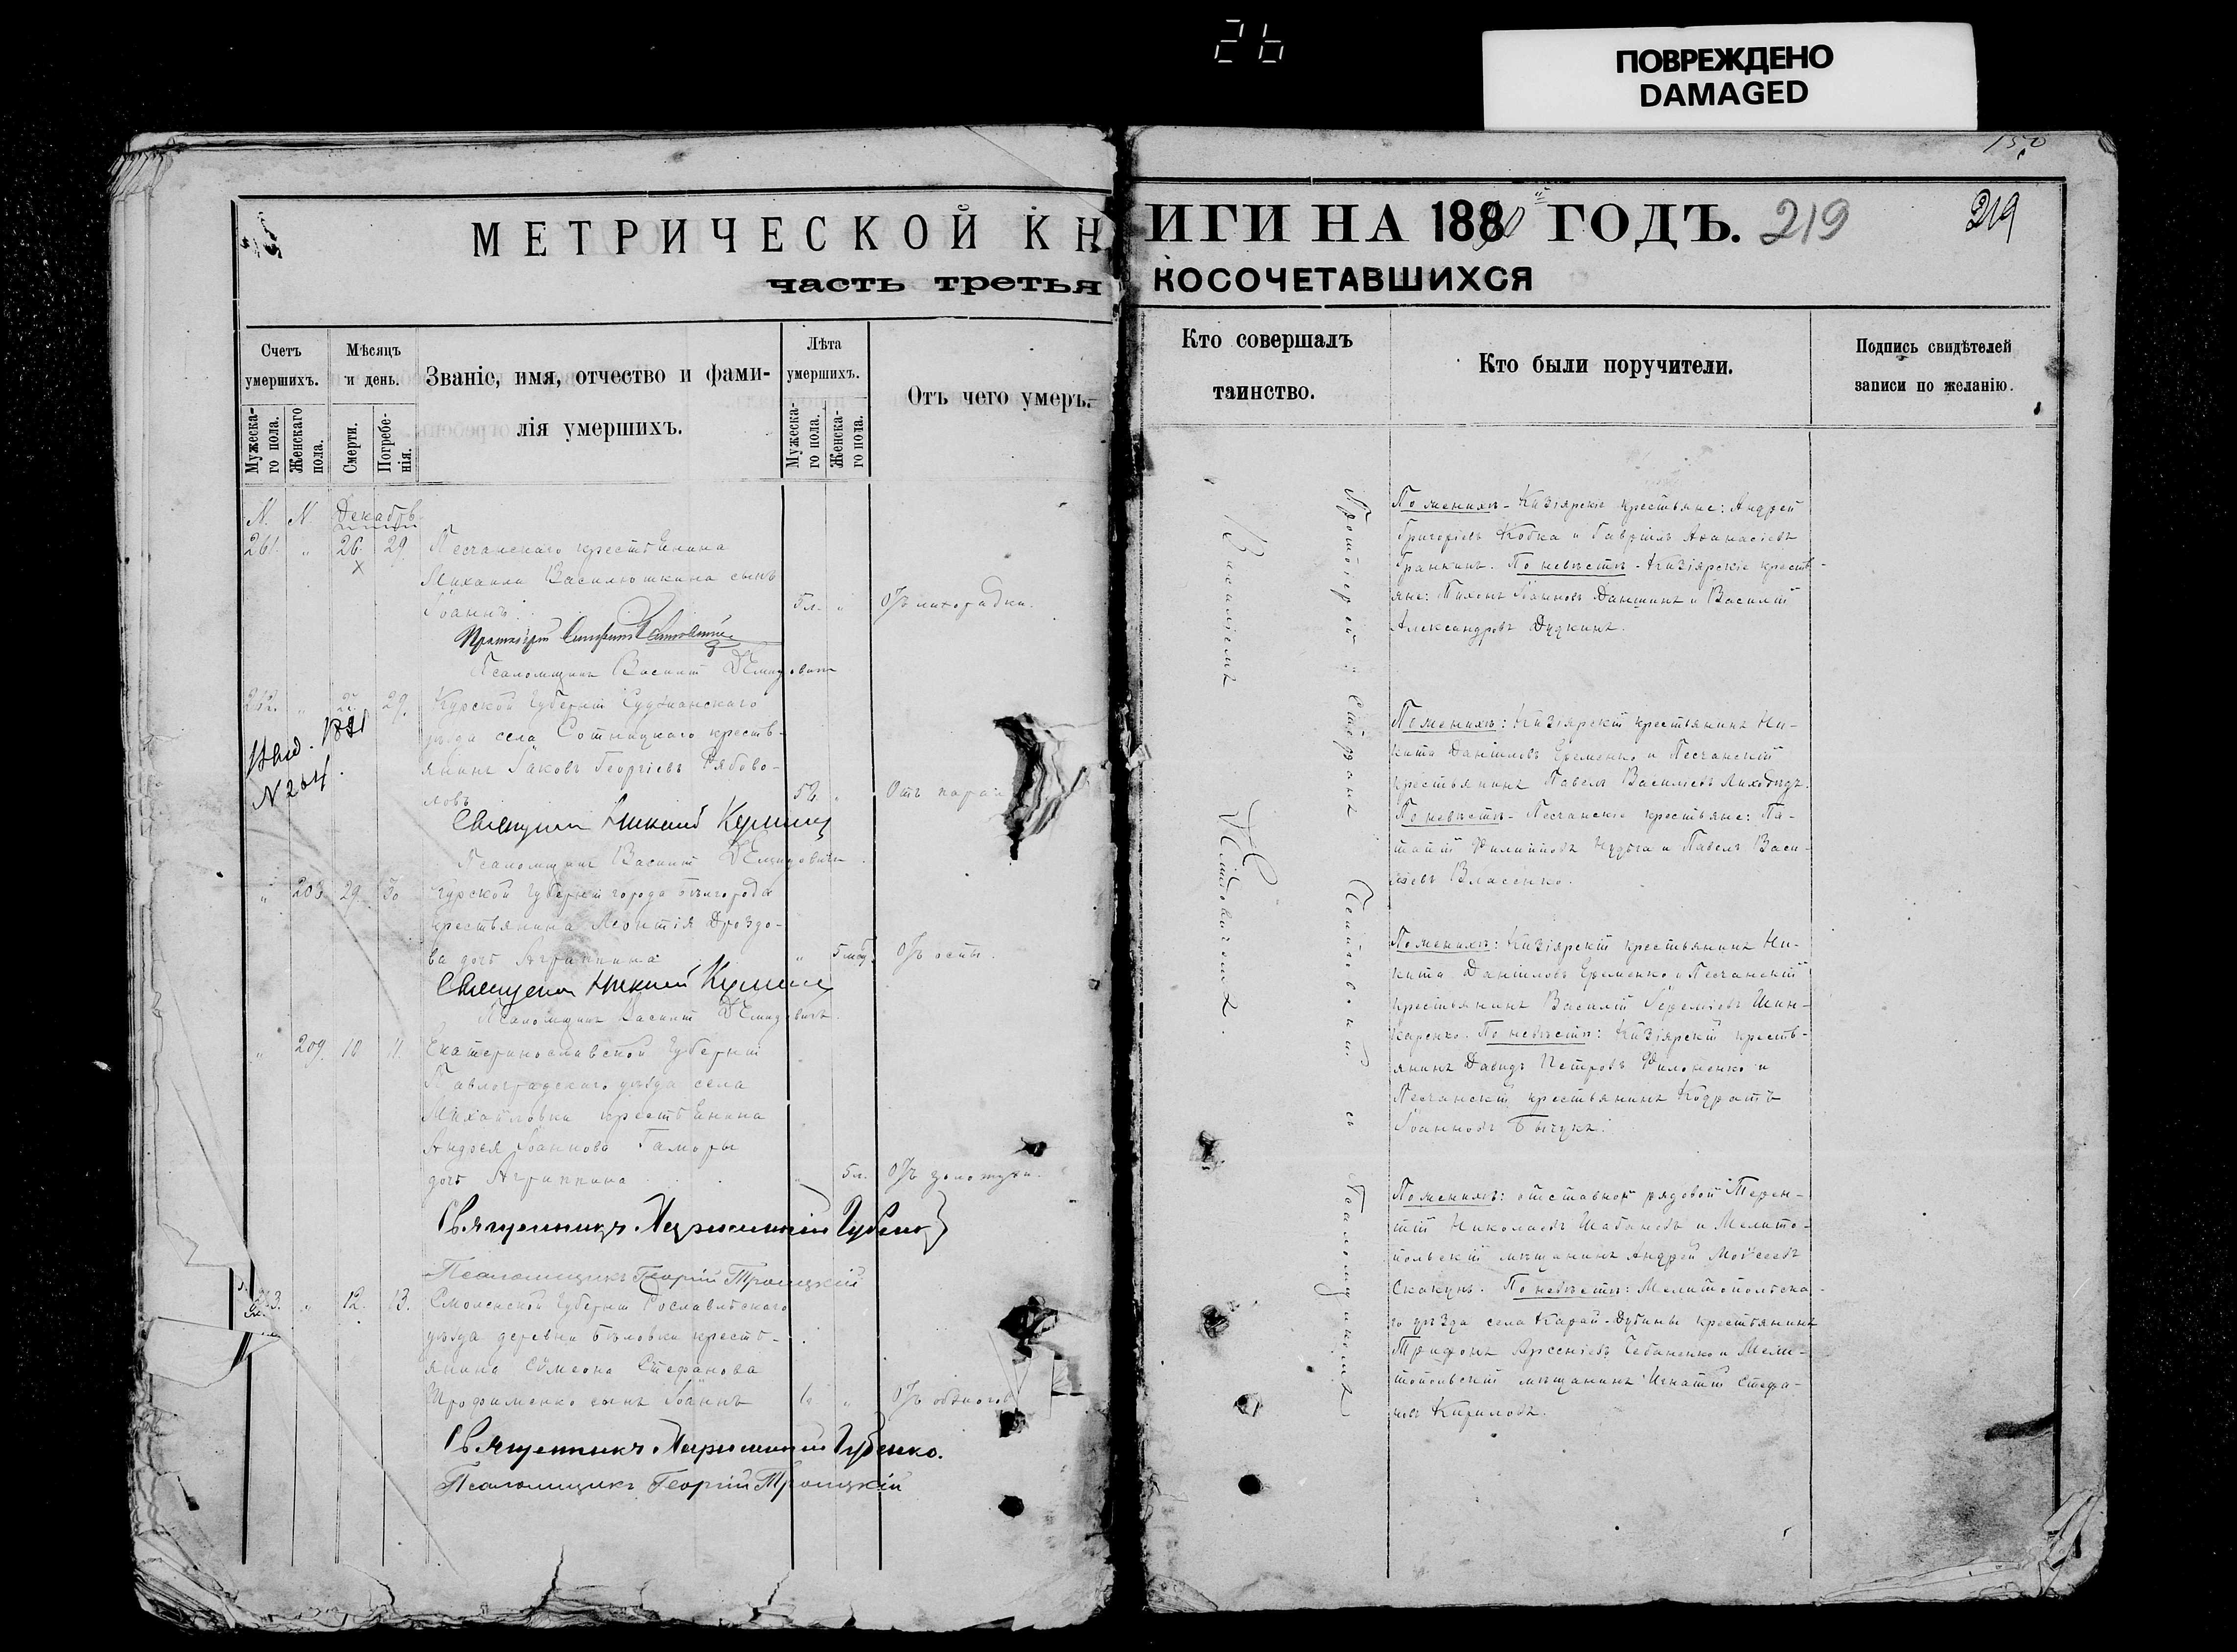 26
ПОВРЕЖДЕНО
DAMAGED
150
МЕТРИЧЕСКОЙ КН
часть третья
Счетъ умершихъ.
Мѣсяцъ и день.
Званіе, имя, отчество и фами-
лія умершихъ.
Лѣта умершихъ.
Отъ чего умеръ.
Мужеска-
го пола.
Женскаго
пола.
Смерти.
Погребе-
нія.
Мужеска-
го пола.
Женска-
го пола.
N. N. Декабрь
261. " 26. 29. Песчанскаго крестьянина
Михаила Василюшкина сынъ
Іоаннъ 5 л. " Отъ лихорадки.
Псаломщикъ Василій Демидовичъ
262. " 29. Курской Губерніи Суджанскаго
уѣзда села Сотницкаго кресть-
янинъ Іаковъ Георгіевъ Рябово-
ловъ 52. " Отъ
N 204.
Священникъ Николай
Псаломщикъ Василій Демидовичъ.
" 203. 29. 30 Курской Губерніи города Бѣлгорода
крестьянина Леонтія Дроздо-
ва дочь Агриппина " Отъ оспы.
Священникъ Николай
Псаломщикъ Василій Демидовичъ.
" 209. 10 11. Екатеринославской Губерніи
Павлоградскаго уѣзда села
Михайловки крестьянина
Андрея Іоаннова Гаморы
дочь Агриппина " 5 л. Отъ золотухи.
Священникъ Губенко
Псаломщикъ Георгій Троицкій
" 12. 13. Смоленской Губерніи Рославльскаго
уѣзда деревни Бѣловки кресть-
янина Симеона Стефанова
Трофименко сынъ Іоаннъ "
Священникъ Губенко.
Псаломщикъ Георгій Троицкій
ИГИ НА 1890 ГОДЪ. 219 219
КОСОЧЕТАВШИХСЯ
Кто совершалъ
таинство.
Кто были поручители.
Подпись свидѣтелей
записи по желанію.
Протоіерей Стефанъ съ Псаломщикомъ
Василіемъ Демидовичемъ.
По женихѣ - Кизіярскіе крестьяне: Андрей
Григоріевъ Кобка и Гавріилъ Аѳанасіевъ
Гранкинъ. По невѣстѣ - Кизіярскіе кресть-
яне: Тихонъ Іоанновъ Даншинъ и Василій
Александровъ Дудкинъ.
По женихѣ: Кизіярскій крестьянинъ Ни-
кита Даніиловъ Еременко и Песчанскій
крестьянинъ Павелъ Васильевъ Лиходидъ.
По невѣстѣ - Песчанскіе крестьяне:
Филипповъ и Павелъ Васи-
льевъ Власенко.
По женихѣ: Кизіярскій крестьянинъ Ни-
кита Даніиловъ Еременко и Песчанскій
крестьянинъ Василій Іереміевъ Шин-
каренко. По невѣстѣ: Кизіярскій кресть-
янинъ Давидъ Петровъ Филоненко и
Песчанскій крестьянинъ Кодратъ
Іоанновъ Бычукъ.
По женихѣ: отставной рядовой Терен-
тій Николаевъ Шабановъ и Мелито-
польскій мѣщанинъ Андрей Моѵсеевъ
Скакунъ. По невѣстѣ: Мелитопольска-
го уѣзда села Карай-Дубины крестьянинъ
Трифонъ Арсеніевъ Чебаненко и Мели-
топольскій мѣщанинъ Игнатій Стефа-
новъ Кириловъ.